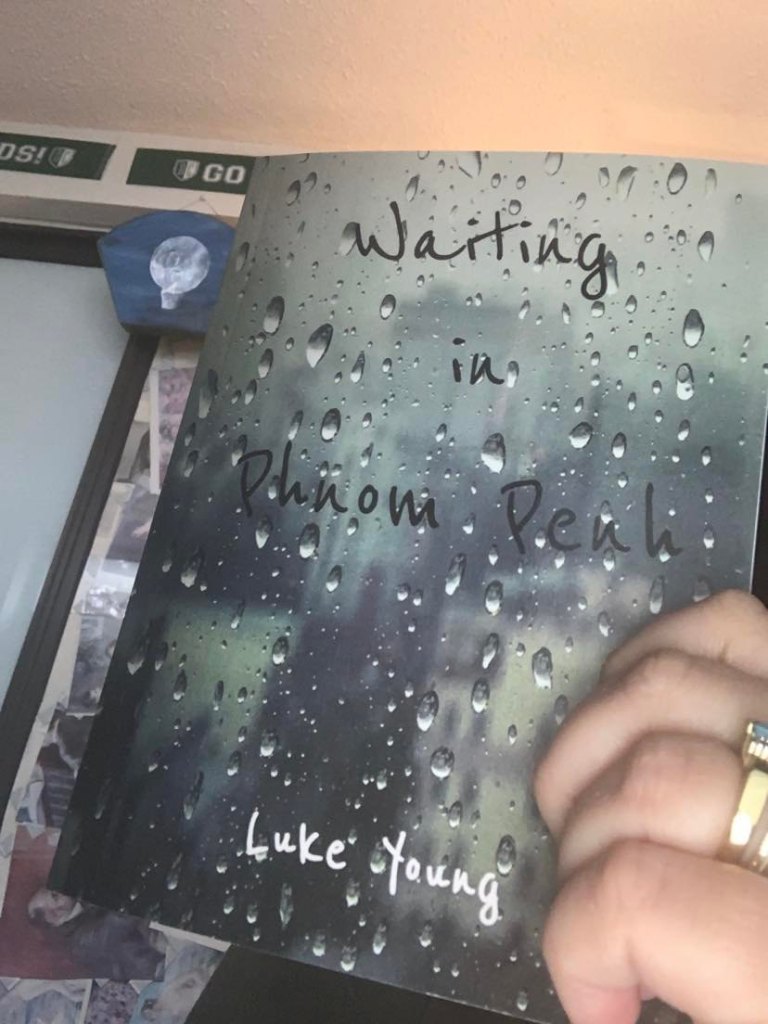 DS! GO
Waiting
in
Phnom Penh
Luke Young